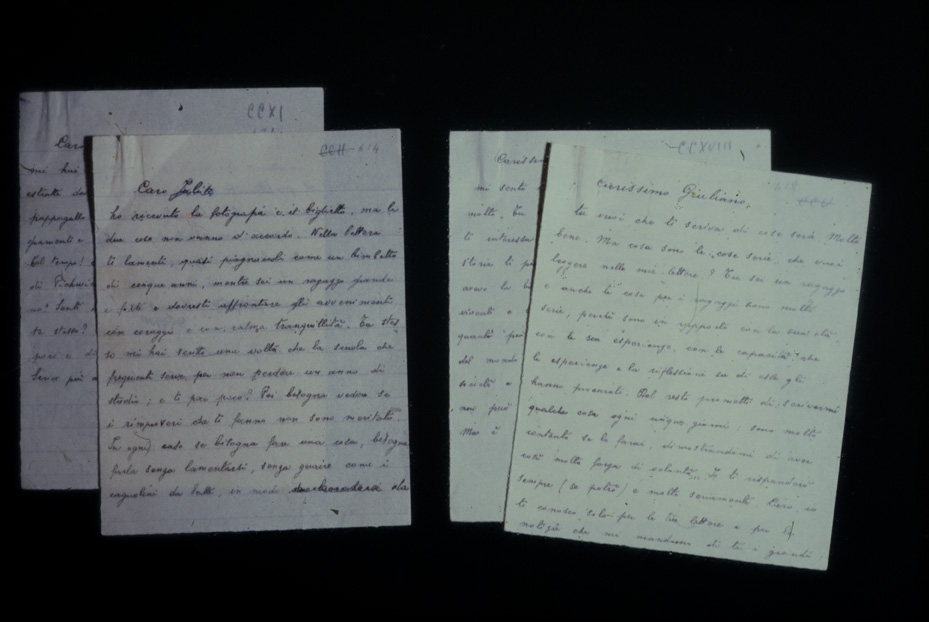 CCXI
Caro
mi hai
pappagallo
di
no? Senti
te stesso?
CCII 614
Caro Julik
ho ricevuto la fotografia e il biglietto, ma le
due cose non vanno d'accordo. Nella lettera
ti lamenti, quasi piagnucoli come un bimbetto
di cinque anni, mentre sei un ragazzo grande
e forte e dovresti affrontare gli avvenimenti
con coraggio e con calma tranquillità. Tu stes
so mi hai scritto una volta che la scuola che
frequenti serve per non perdere un anno di
studio; e ti pare poco? Poi bisogna vedere se
i rimproveri che ti fanno non sono meritati.
In ogni caso se bisogna fare una cosa, bisogna
farla senza lamentarsi, senza guaire come i
cagnolini da latte, in modo da che
CCXVIII
Carissi
mi sento
molto. Tu
ti interessa
storie ti
viventi e
quanto
del mondo
società e
non può
Ma è
Carissimo Giuliano,
tu vuoi che ti scriva di cose serie. Molto
bene. Ma cosa sono le "cose serie" che vuoi
leggere nelle mie lettere? Tu sei un ragazzo
e anche le cose per i ragazzi sono molto
serie, perché sono in rapporto con la loro età,
con le loro esperienze, con le capacità che
le esperienze e la riflessione su di esse gli
hanno procurato. Del resto prometti di scrivermi
qualche cosa ogni cinque giorni; sono molto
contento se lo farai, dimostrandomi di aver
così molta forza di volontà. Io ti risponderò
sempre (se potrò) e molto seriamente. Caro, io
ti conosco solo per le tue lettere e per le
notizie che mi mandano di te i grandi